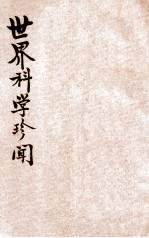 世界科学珍闻